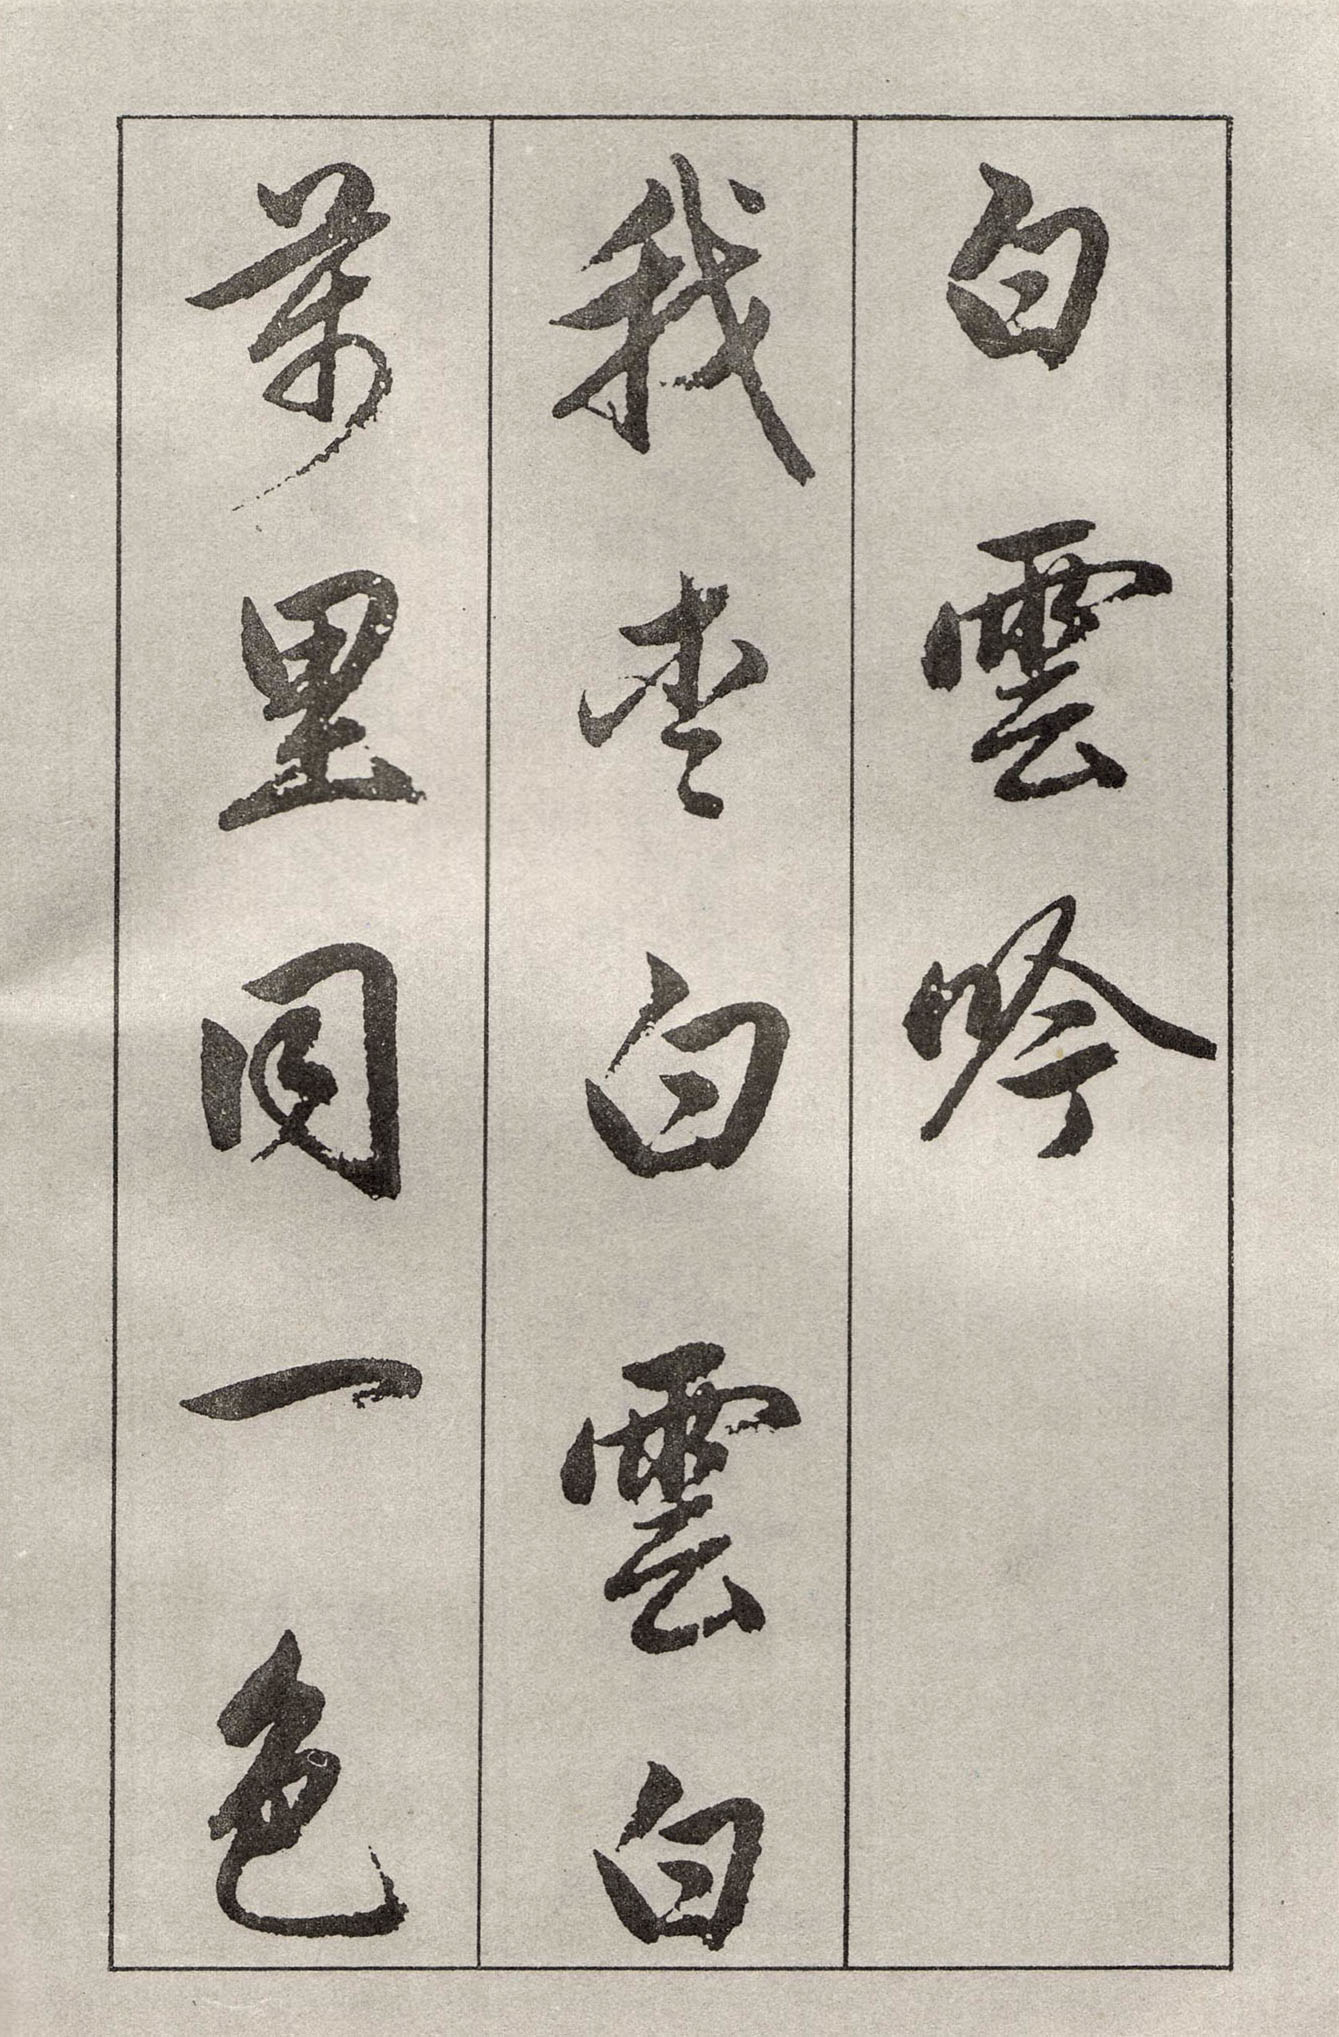 白雲吟
我来白雲白
萬里同一色